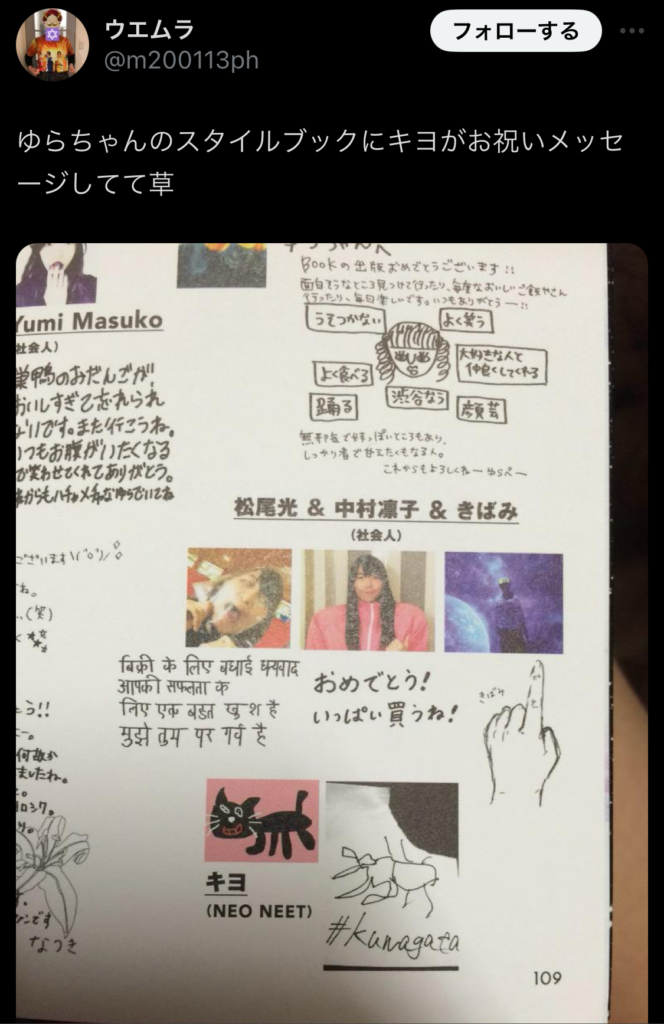 ウエムラ
@m200113ph
フォローする
ゆらちゃんのスタイルブックにキヨがお祝いメッセ
ージしてて草
Bookの出版おめでとうございます!!
面白そうなところ見つけて行ったり、毎度おいしいご飯やさん
行ったり、毎日楽しいです。いつもありがとうー!!
うそつかない
よく笑う
よく食べる
大好きな人と
仲良くしてくれる
踊る
渋谷なう
顔芸
無邪気で子どもっぽいところもあり、
しっかり者で甘えたくもなる人。
これからもよろしくねー
Yumi Masuko
社会人)
巣鴨のおだんごが!
おいしすぎて忘れられ
ないです。また行こうね。
いつもお腹がいたくなる
で笑わせてくれてありがとう。
松尾光 & 中村凛子 & きばみ
(社会人)
ございます\(^o^)/
ね。
(笑)
बिक्री के लिए बधाई धन्यवाद
आपकी सफलता के
लिए एक बहुत खुश है
मुझे तुम पर गर्व है
おめでとう!
いっぱい買うね!
きばみ
う!!
何故か
ましたね。
ヨロシク。
です
なつき
キヨ
(NEO NEET)
#kuwagata
109